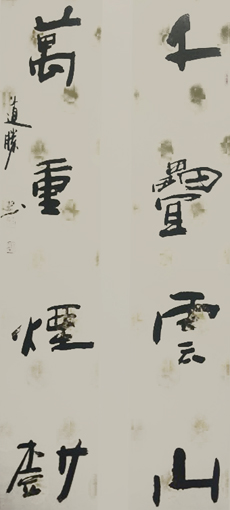 千疊雲山
萬重煙樹
道勝